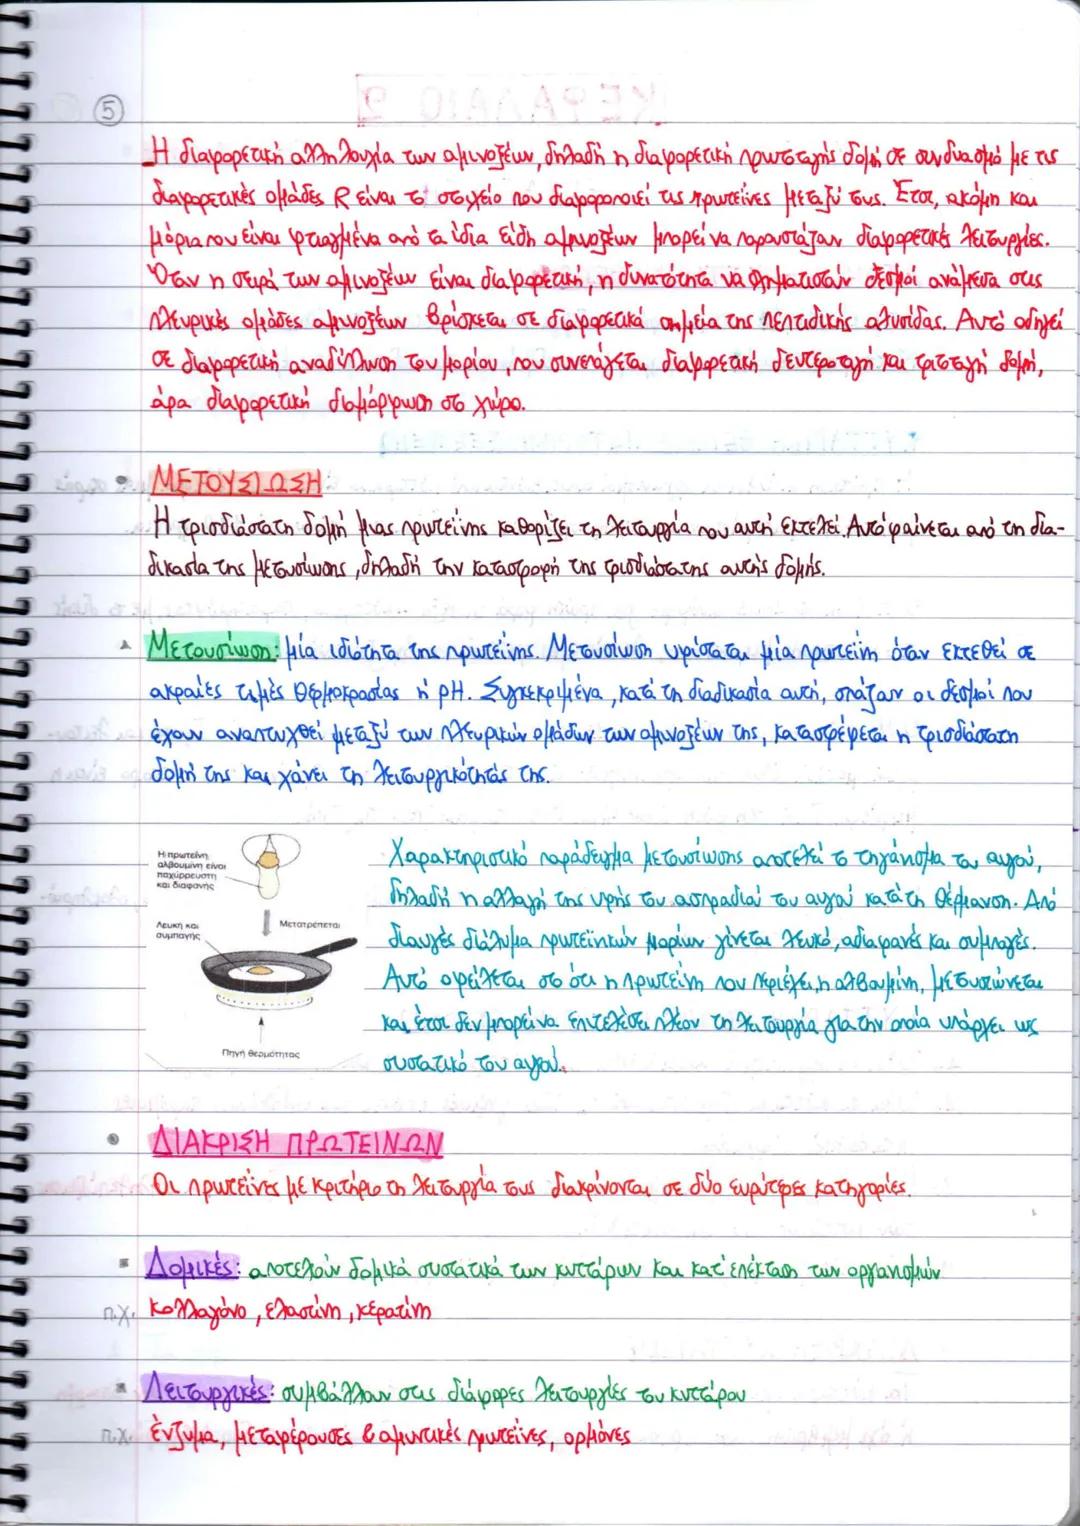 5
Η διαφορετική αλληλουχία των αμινοξέων, δηλαδή η διαφορετική πρωτοταγής δομή σε συνδυασμό με τις
διαφορετικές ομάδες R είναι το στοιχείο που διαφοροποιεί τις πρωτεΐνες μεταξύ τους. Έτσι, ακόμη και
μόρια που είναι φτιαγμένα από τα ίδια είδη αμινοξέων μπορεί να παρουσιάζουν διαφορετικές λειτουργίες.
Όταν η σειρά των αμινοξέων είναι διαφορετική, η δυνατότητα να σχηματιστούν δεσμοί ανάμεσα στις
πλευρικές ομάδες αμινοξέων βρίσκεται σε διαφορετικά σημεία της πεπτιδικής αλυσίδας. Αυτό οδηγεί
σε διαφορετική αναδίπλωση του μορίου, που συνεπάγεται διαφορετική δευτεροταγή και τριτοταγή δομή,
άρα διαφορετική διαμόρφωση στο χώρο.
• ΜΕΤΟΥΣΙΩΣΗ
Η τρισδιάστατη δομή μιας πρωτεΐνης καθορίζει τη λειτουργία που αυτή εκτελεί. Αυτό φαίνεται από τη δια-
δικασία της μετουσίωσης, δηλαδή την καταστροφή της τρισδιάστατης αυτής δομής.
▲ Μετουσίωση: μία ιδιότητα της πρωτεΐνης. Μετουσίωση υφίσταται μία πρωτεΐνη όταν εκτεθεί σε
ακραίες τιμές θερμοκρασίας ή pH. Συγκεκριμένα, κατά τη διαδικασία αυτή, σπάζουν οι δεσμοί που
έχουν αναπτυχθεί μεταξύ των πλευρικών ομάδων των αμινοξέων της, καταστρέφεται η τρισδιάστατη
δομή της και χάνει τη λειτουργικότητάς της.
Η πρωτεΐνη
αλβουμίνη είναι
παχύρρευστη
και διαφανής
Λευκή και
συμπαγής
Μετατρέπεται
Πηγή θερμότητας
Χαρακτηριστικό παράδειγμα μετουσίωσης αποτελεί το τηγάνισμα του αυγού,
δηλαδή η αλλαγή της υφής του ασπραδιού του αυγού κατά τη θέρμανση. Από
διαυγές διάλυμα πρωτεϊνικών μορίων γίνεται λευκό, αδιαφανές και συμπαγές.
Αυτό οφείλεται στο ότι η πρωτεΐνη που περιέχει, η αλβουμίνη, μετουσιώνεται
και έτσι δεν μπορεί να επιτελέσει πλέον τη λειτουργία για την οποία υπάρχει ως
συστατικό του αυγού.
• ΔΙΑΚΡΙΣΗ ΠΡΩΤΕΙΝΩΝ
Οι πρωτεΐνες με κριτήριο τη λειτουργία τους διακρίνονται σε δύο ευρύτερες κατηγορίες.
▪ Δομικές: αποτελούν δομικά συστατικά των κυττάρων και κατ' επέκταση των οργανισμών
π.χ. κολλαγόνο, ελαστίνη, κερατίνη
▪ Λειτουργικές: συμβάλλουν στις διάφορες λειτουργίες του κυττάρου
π.χ. ένζυμα, μεταφέρουσες & αμυντικές πρωτεΐνες, ορμόνες